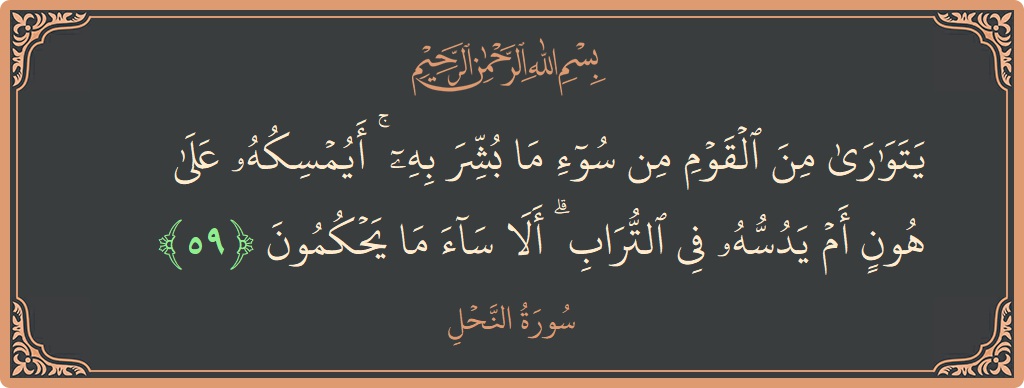 بِسْمِ اللَّهِ الرَّحْمَٰنِ الرَّحِيمِ
يَتَوَٰرَىٰ مِنَ ٱلْقَوْمِ مِن سُوٓءِ مَا بُشِّرَ بِهِۦٓ ۚ أَيُمْسِكُهُۥ عَلَىٰ
هُونٍ أَمْ يَدُسُّهُۥ فِى ٱلتُّرَابِ ۗ أَلَا سَآءَ مَا يَحْكُمُونَ ﴿٥٩﴾
سُورَةُ النَّحْلِ